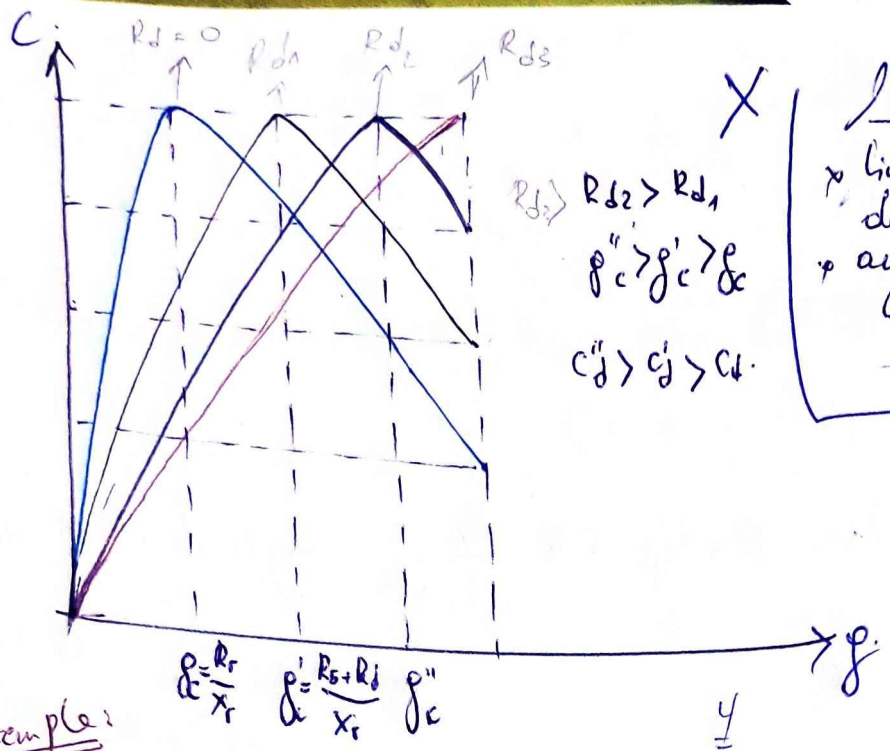 C.
Rd = 0
Rd1
Rd2
Rd3
X
Rd3> Rd2 > Rd1
g"c > g'c > gc
C"d > C'd > Cd.
gc = Rr / Xr
g'c = Rr + Rd / Xr
g"c
g.
y